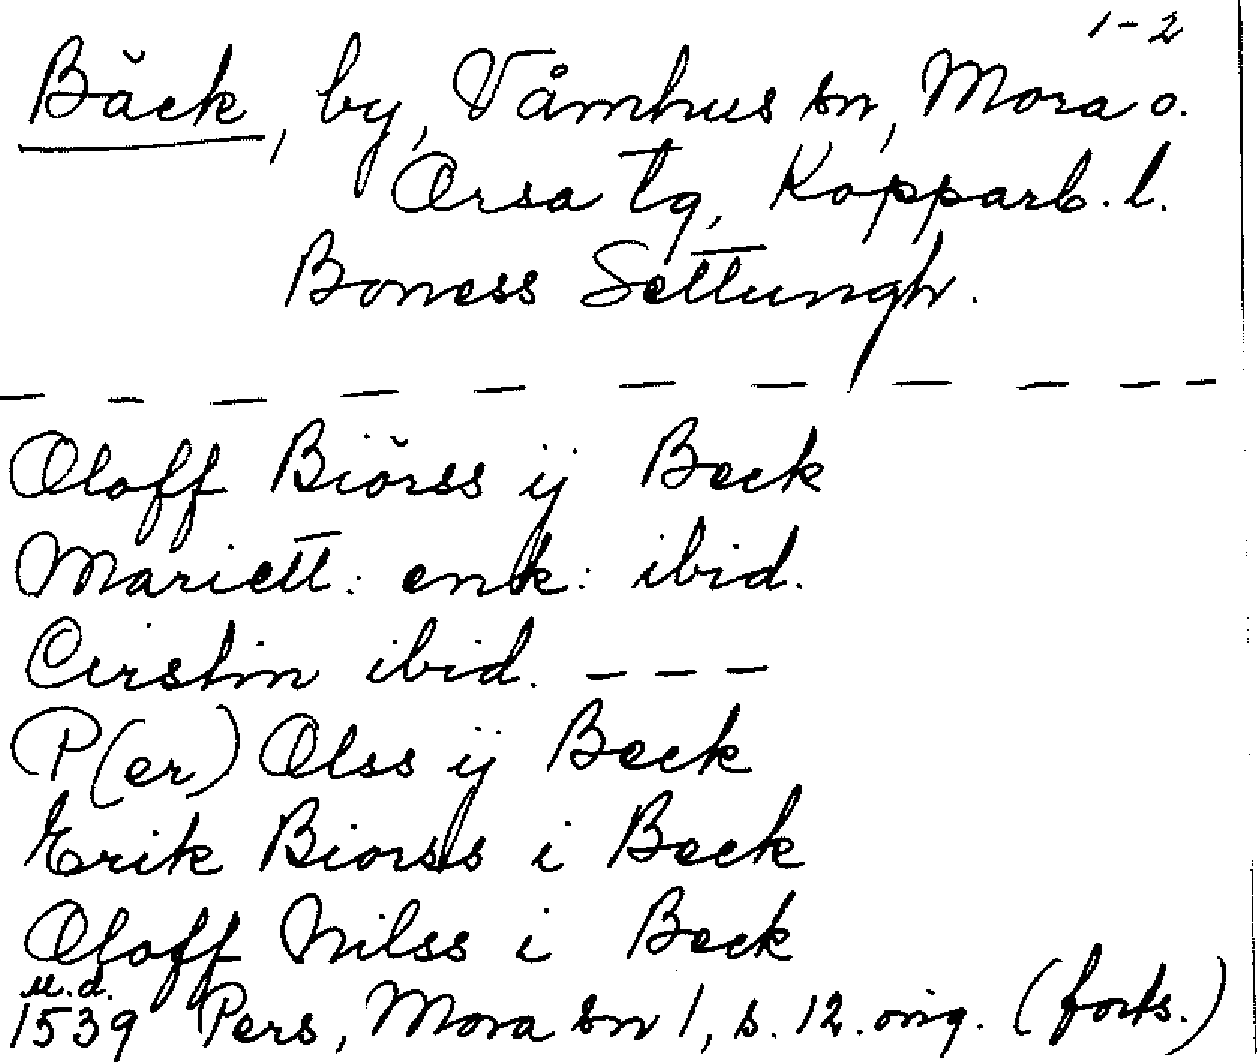 1-2
Bäck, by, Våmhus sn, Mora o.
Orsa tg, Kopparb. l.
Boness Settungh.
Oloff Biörss ij Beck
Mariett: enk: ibid.
Cirstin ibid. - - -
P(er) Olss ij Beck
Erik Biorss i Beck
Oloff Nilss i Beck
u.d.
1539 Pers, Mora sn 1, s. 12. orig. (forts.)